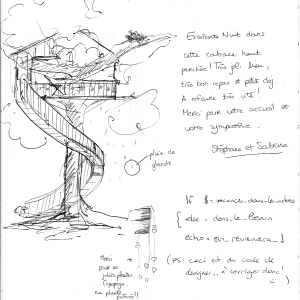 Excellente Nuit dans
cette cabane haut
perchée! Très joli lieu,
très bon repas et petit dej
A refaire très vite!
Merci pour votre accueil et
votre sympathie.
Stéphane et Sabrina
pluie de
glands.
If $ = vacances-dans-les-arbres
{ else = dans-le-
echo = on reviendra_!
(PS: ceci est du code de
à corriger donc!
Merci
pour
jolies plantes